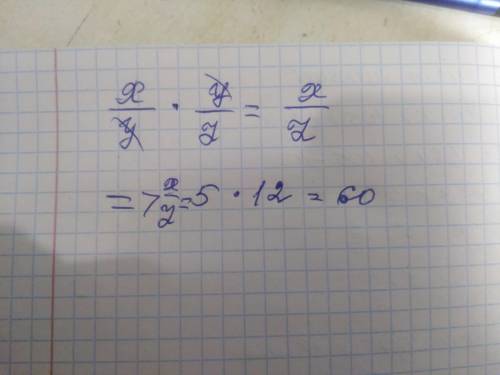 x/y · y/z = x/z
=> x/z = 5 · 12 = 60